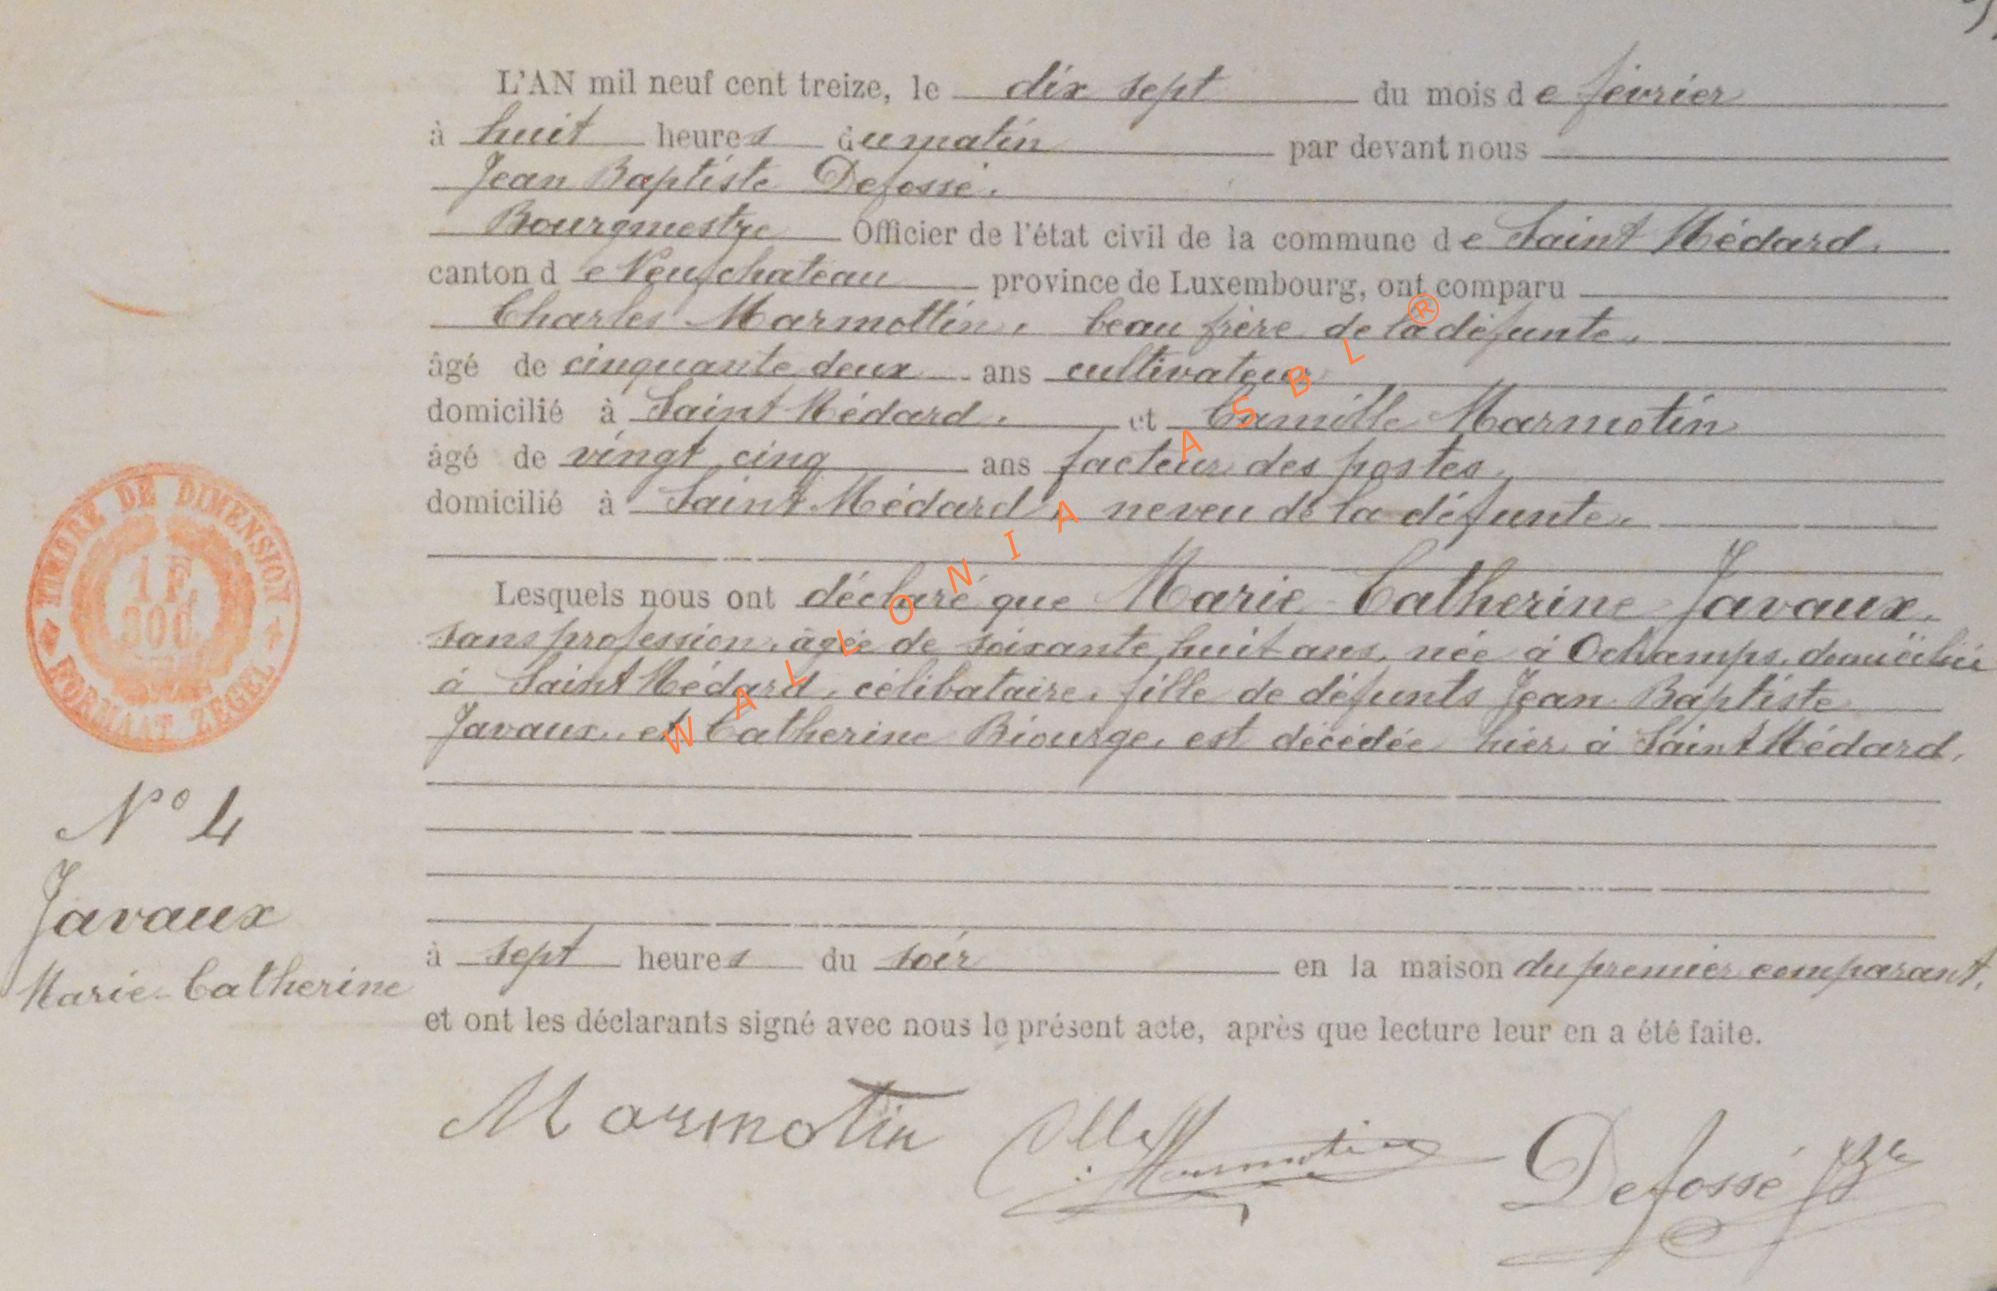 L'AN mil neuf cent treize, le dix sept du mois de février
à huit heures du matin par devant nous
Jean Baptiste Defossé.
Bourgmestre Officier de l'état civil de la commune de Saint Médard.
canton de Neufchateau province de Luxembourg, ont comparu
Charles Marmottin, beau frère de la défunte,
âgé de cinquante deux ans cultivateur
domicilié à Saint Médard. et Camille Marmotin
âgé de vingt cinq ans facteur des postes,
domicilié à Saint Médard, neveu de la défunte.
Lesquels nous ont déclaré que Marie Catherine Javaux,
sans profession, âgée de soixante huit ans, née à Ochamps, domiciliée
à Saint Médard, célibataire, fille de défunts Jean Baptiste
Javaux, et Catherine Biourge, est décédée hier à Saint Médard,
à sept heures du soir en la maison du premier comparant,
et ont les déclarants signé avec nous le présent acte, après que lecture leur en a été faite.
Marmotin Marmotin Defossé
TIMBRE DE DIMENSION
1 F. 30 C.
FORMAAT ZEGEL
Nº 4
Javaux
Marie-Catherine
WALLONIA ASBL ®